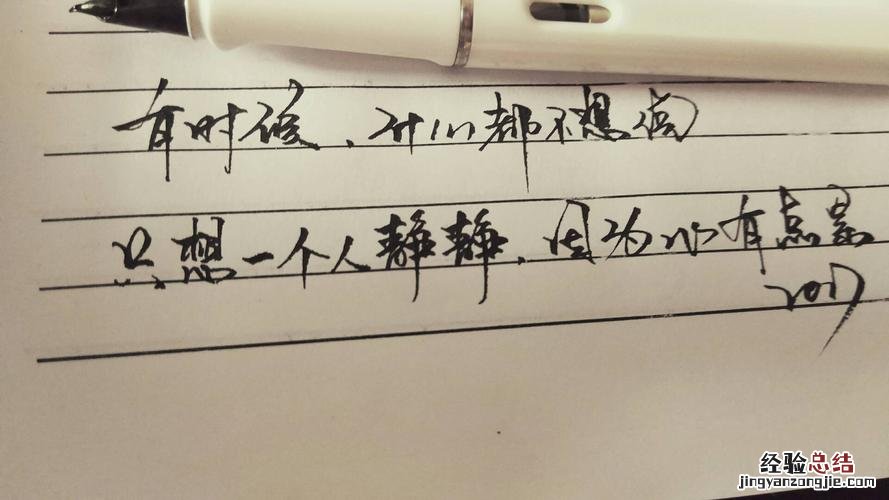 有时候,什么都不想
只想一个人静静,因为心有点累
2017
经验总结
jingyanzongjie.com